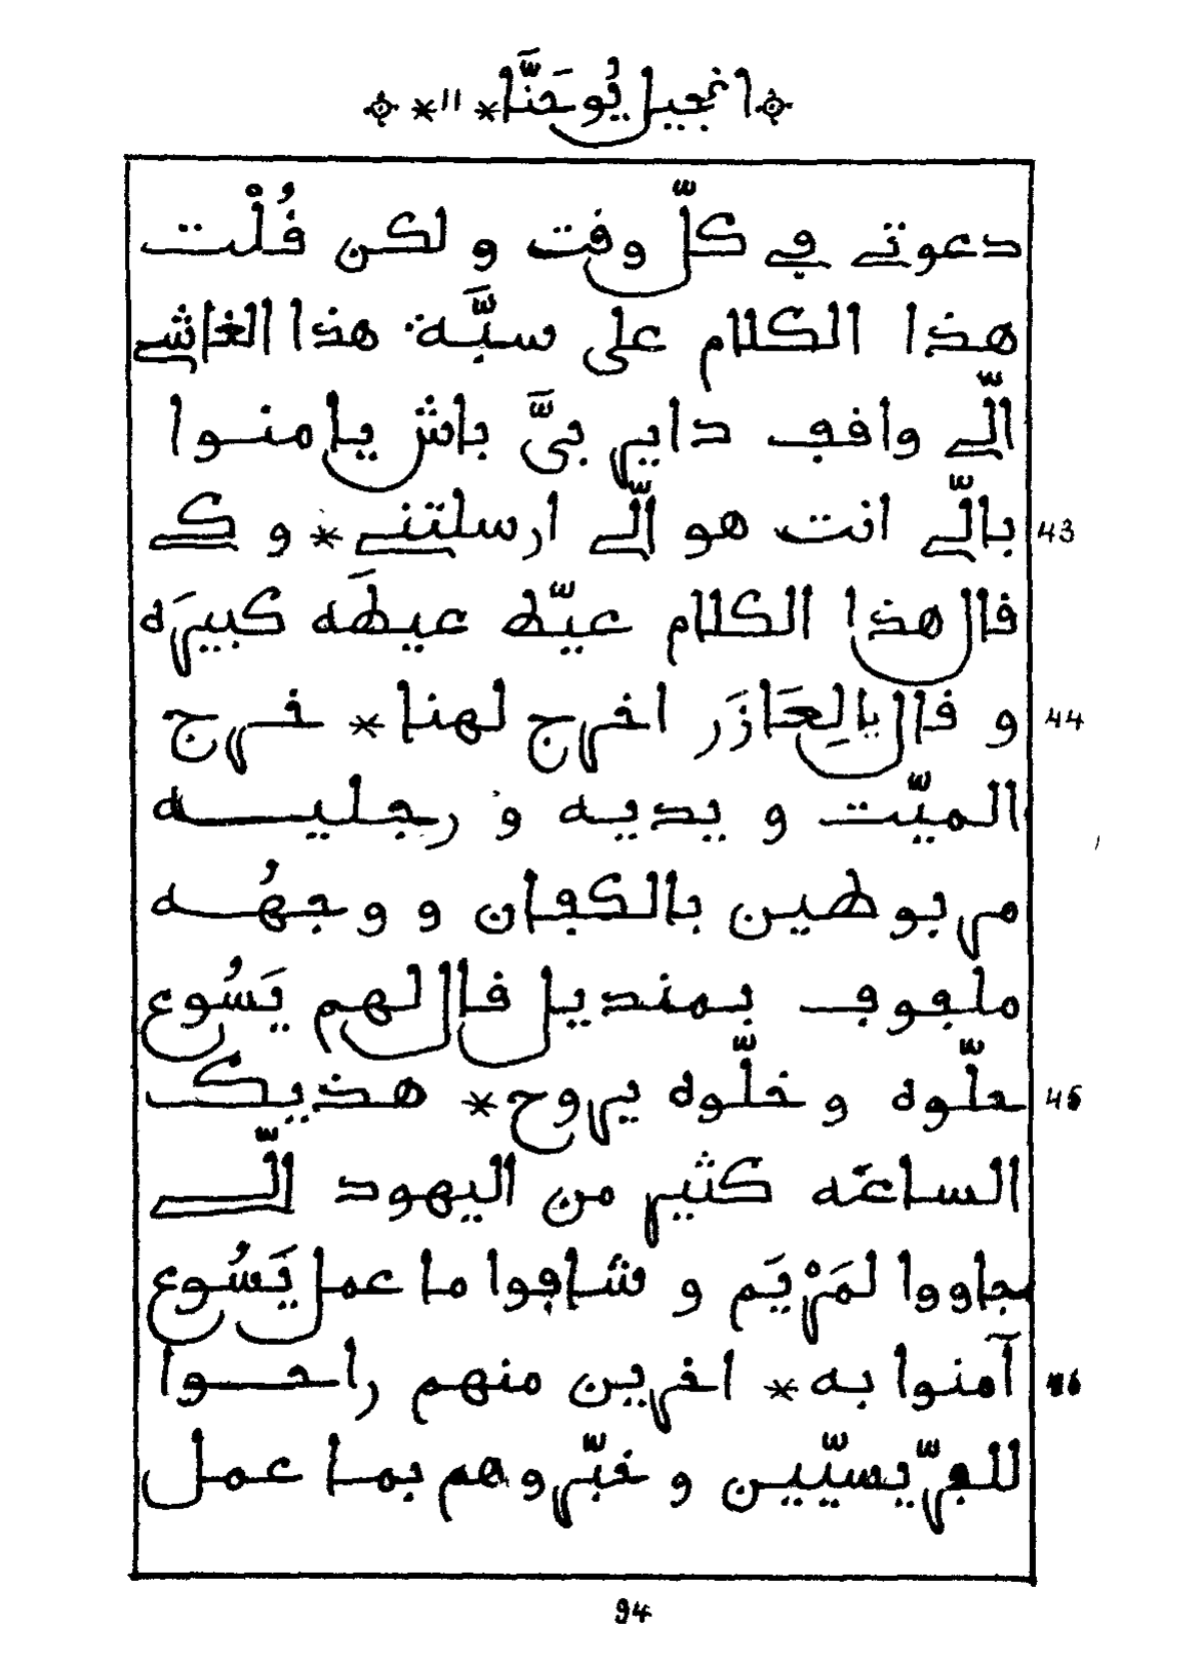 انجيل يُوحَنَّا * 11 *
دعوتي في كلّ وقت و لكن قُلْت
هذا الكلام على سبَّة هذا الغاشي
الّي واقف داير بيَّ باش يامنوا
43 بالّي انت هو الّي ارسلتني * و كي
قال هذا الكلام عيّط عيطَه كبيرَه
44 و قال يا لِعَازَر اخرج لهنا * خرج
الميّت و يديه و رجليه
مربوطين بالكفان و وجهُه
ملفوف بمنديل قال لهم يَسُوع
45 حلّوه و خلّوه يروح * هذيك
الساعه كثير من اليهود الّي
جاووا لمَرْيَم و شافوا ما عمل يَسُوع
46 آمنوا به * اخرين منهم راحوا
للفرّيسيّين و خبّروهم بما عمل
94